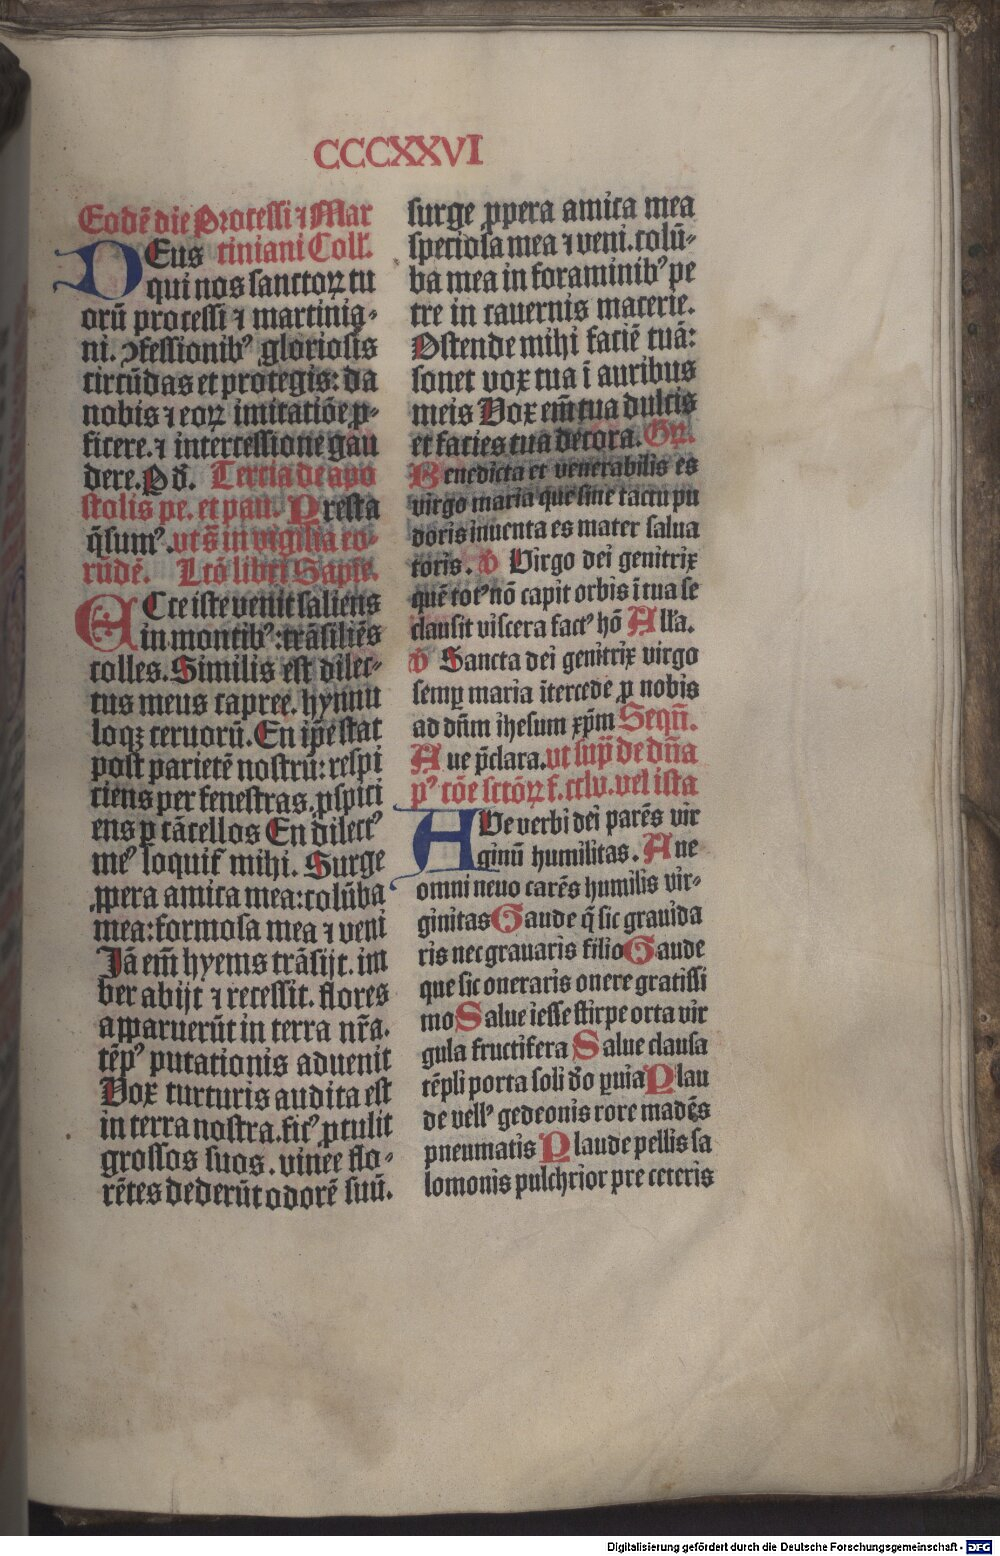 CCCXXVI
Eodē die Processi ⁊ Mar
DEus tiniani Coll'.
qui nos sanctoꝝ tu
orū processi ⁊ martinia-
ni. ꝯfessionibꝰ gloriosis
circūdas et protegis: da
nobis ⁊ eoꝝ imitatiōe ꝓ-
ficere. ⁊ intercessione gau
dere. P d̄. Tercia de apo
stolis pe. et pau. Presta
q̄sumꝰ. ut s̄ in vigilia eo-
rūdē. Lc̄o libri Sapīe.
ECce iste venit saliens
in montibꝰ: trāsiliēs
colles. Similis est dilec-
tus meus capree. hynnu
loqꝫ ceruorū. En ip̄e stat
post parietē nostrū: respi
ciens per fenestras. ꝓspici
ens ꝑ cācellos En dilectꝰ
meꝰ loquit᷑ mihi. Surge
ꝓpera amica mea: colūba
mea: formosa mea ⁊ veni
Jā em̄ hyems trāsijt. im
ber abijt ⁊ recessit. flores
apparuerūt in terra nr̄a.
tēpꝰ putationis aduenit
Vox turturis audita est
in terra nostra. ficꝰ ꝓtulit
grossos suos. vinee flo-
rētes dederūt odorē suū.
surge ꝓpera amica mea
speciosa mea ⁊ veni. colū-
ba mea in foraminibꝰ pe
tre in cauernis macerie.
Ostende mihi faciē tuā:
sonet vox tua ī auribus
meis Vox em̄ tua dulcis
et facies tua decora. Gꝝ.
Benedicta et venerabilis es
virgo maria que sine tactu pu
doris inuenta es mater salua
toris. ℣ Virgo dei genitrix
quē totꝰ nō capit orbis ī tua se
clausit viscera factꝰ hō All'a.
℣ Sancta dei genitrix virgo
semꝑ maria ītercede ꝓ nobis
ad dn̄m ihesum xp̄m Seqn̄.
Aue p̄clara. ut sup̄ de dn̄a
pꝰ cōe sctōꝝ f. cclv. vel ista
AVe verbi dei parēs vir
ginū humilitas. Aue
omni neuo carēs humilis vir-
ginitas Gaude q̄ sic grauida
ris nec grauaris filio Gaude
que sic oneraris onere gratissi
mo Salue iesse stirpe orta vir
gula fructifera Salue clausa
tēpli porta soli do ꝑuia Plau
de vellꝰ gedeonis rore madēs
pneumatis Plaude pellis sa
lomonis pulchrior pre ceteris
Digitalisierung gefördert durch die Deutsche Forschungsgemeinschaft - DFG